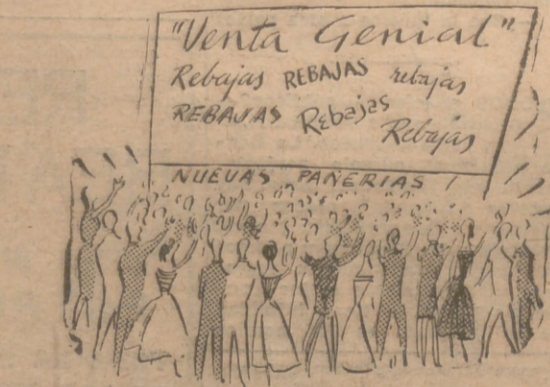 "Venta Genial"
Rebajas REBAJAS rebajas
REBAJAS Rebajas Rebajas
NUEVAS PAÑERIAS